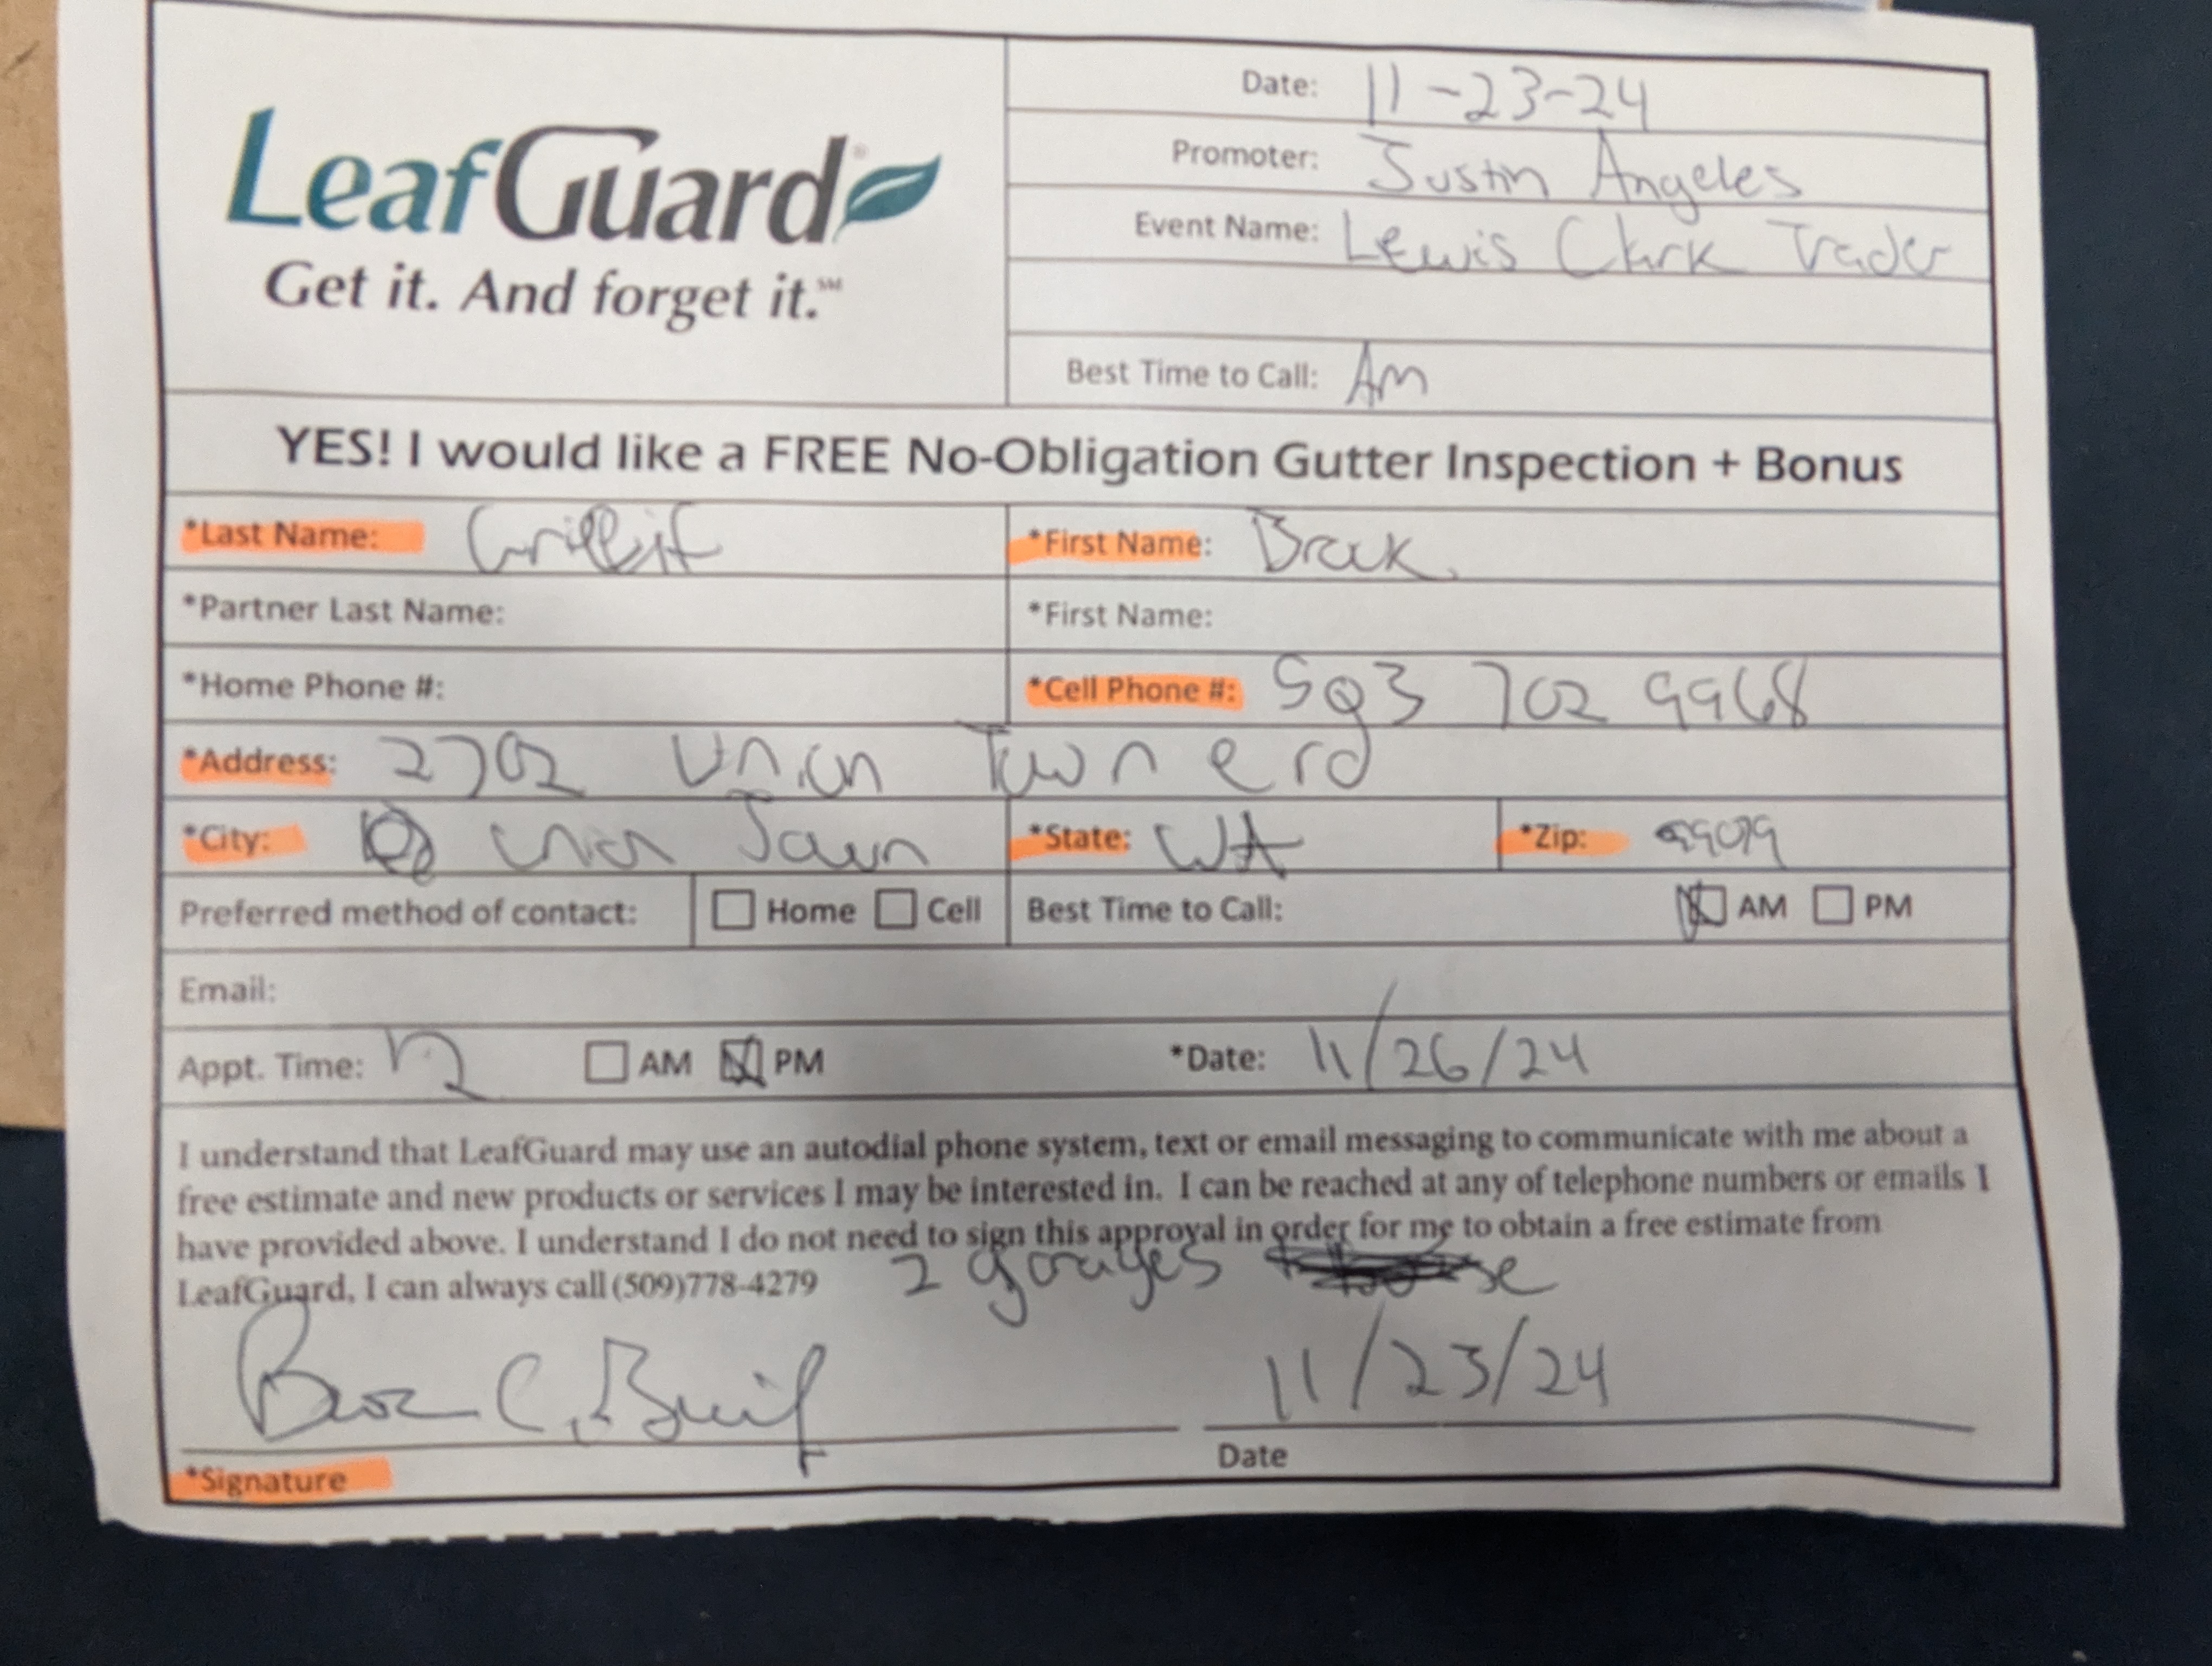 LeafGuard®
Get it. And forget it.℠
Date: 11-23-24
Promoter: Justin Angeles
Event Name: Lewis Clark Trader
Best Time to Call: Am
YES! I would like a FREE No-Obligation Gutter Inspection + Bonus
*Last Name:
*First Name:
*Partner Last Name:
*First Name:
*Home Phone #:
*Cell Phone #: 702 9968
*Address: 2702 Union Town rd
*City: Town
*State: WA
*Zip:
Preferred method of contact: Home Cell
Best Time to Call: AM PM
Email:
Appt. Time: 12 AM PM
*Date: 11/26/24
I understand that LeafGuard may use an autodial phone system, text or email messaging to communicate with me about a
free estimate and new products or services I may be interested in. I can be reached at any of telephone numbers or emails I
have provided above. I understand I do not need to sign this approval in order for me to obtain a free estimate from
LeafGuard, I can always call (509)778-4279
2 garages
11/23/24
*Signature
Date